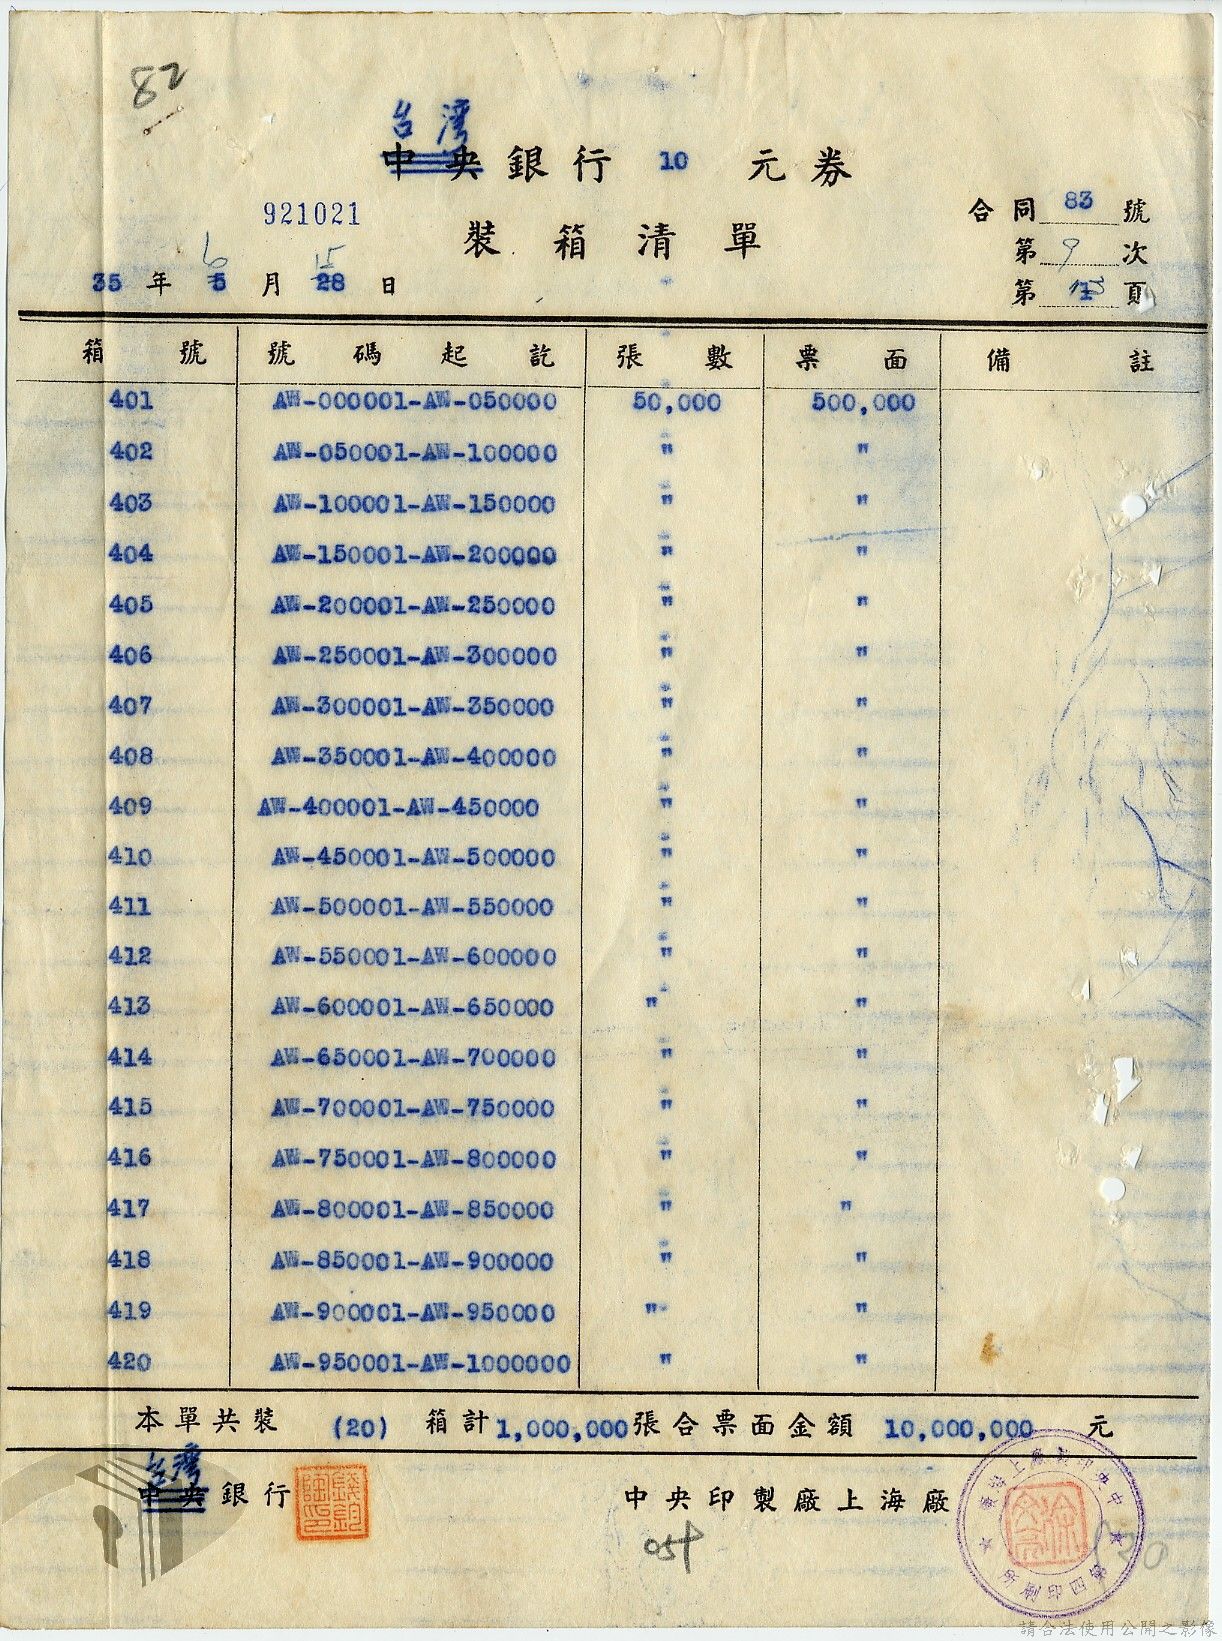 82
台灣
中央銀行 10 元券
921021
裝箱清單
合同 83 號
第 9 次
第 頁
6 15
35 年 5 月 28 日
箱號 號碼起訖 張數 票面 備註
401 AW-000001-AW-050000 50,000 500,000
402 AW-050001-AW-100000 " "
403 AW-100001-AW-150000 " "
404 AW-150001-AW-200000 " "
405 AW-200001-AW-250000 " "
406 AW-250001-AW-300000 " "
407 AW-300001-AW-350000 " "
408 AW-350001-AW-400000 " "
409 AW-400001-AW-450000 " "
410 AW-450001-AW-500000 " "
411 AW-500001-AW-550000 " "
412 AW-550001-AW-600000 " "
413 AW-600001-AW-650000 " "
414 AW-650001-AW-700000 " "
415 AW-700001-AW-750000 " "
416 AW-750001-AW-800000 " "
417 AW-800001-AW-850000 " "
418 AW-850001-AW-900000 " "
419 AW-900001-AW-950000 " "
420 AW-950001-AW-1000000 " "
本單共裝 (20) 箱計 1,000,000 張合票面金額 10,000,000 元
台灣
中央銀行
中央印製廠上海廠
請合法使用公開之影像